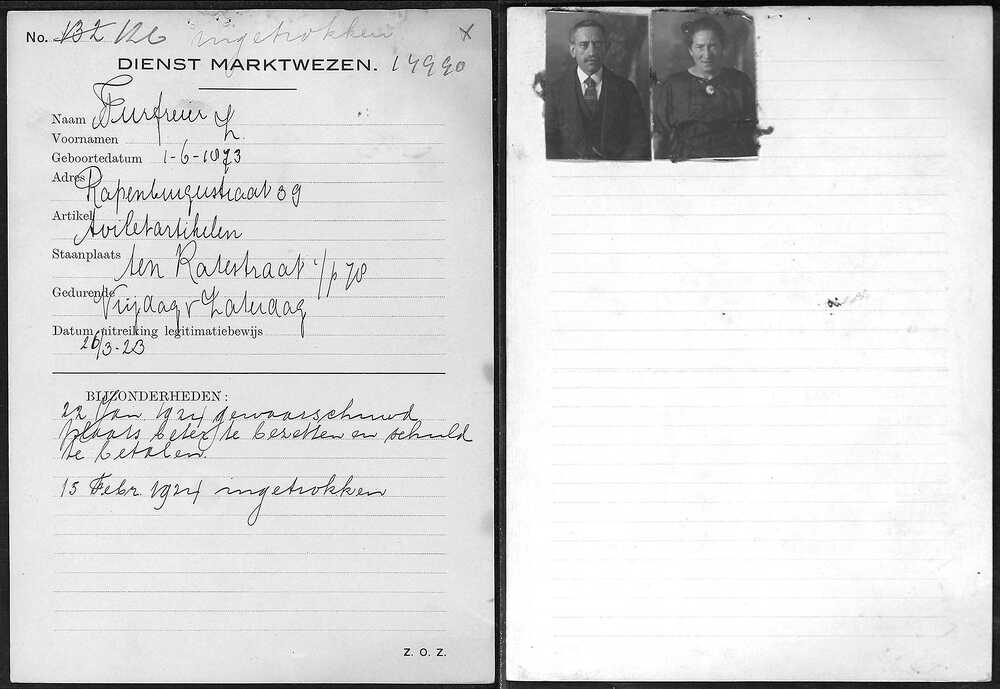 No. 132 126 ingetrokken x
DIENST MARKTWEZEN. 14990
Naam Turfreier
Voornamen L.
Geboortedatum 1-6-1873
Adres Rapenburgerstraat 39
Artikel toiletartikelen
Staanplaats ten Katestraat v/p 78
Gedurende Vrijdag v Zaterdag
Datum uitreiking legitimatiebewijs
26/3-23
BIJZONDERHEDEN:
22 Jan 1924 gewaarschuwd
plaats beter te bezetten en schuld
te betalen.
15 Febr. 1924 ingetrokken
Z. O. Z.